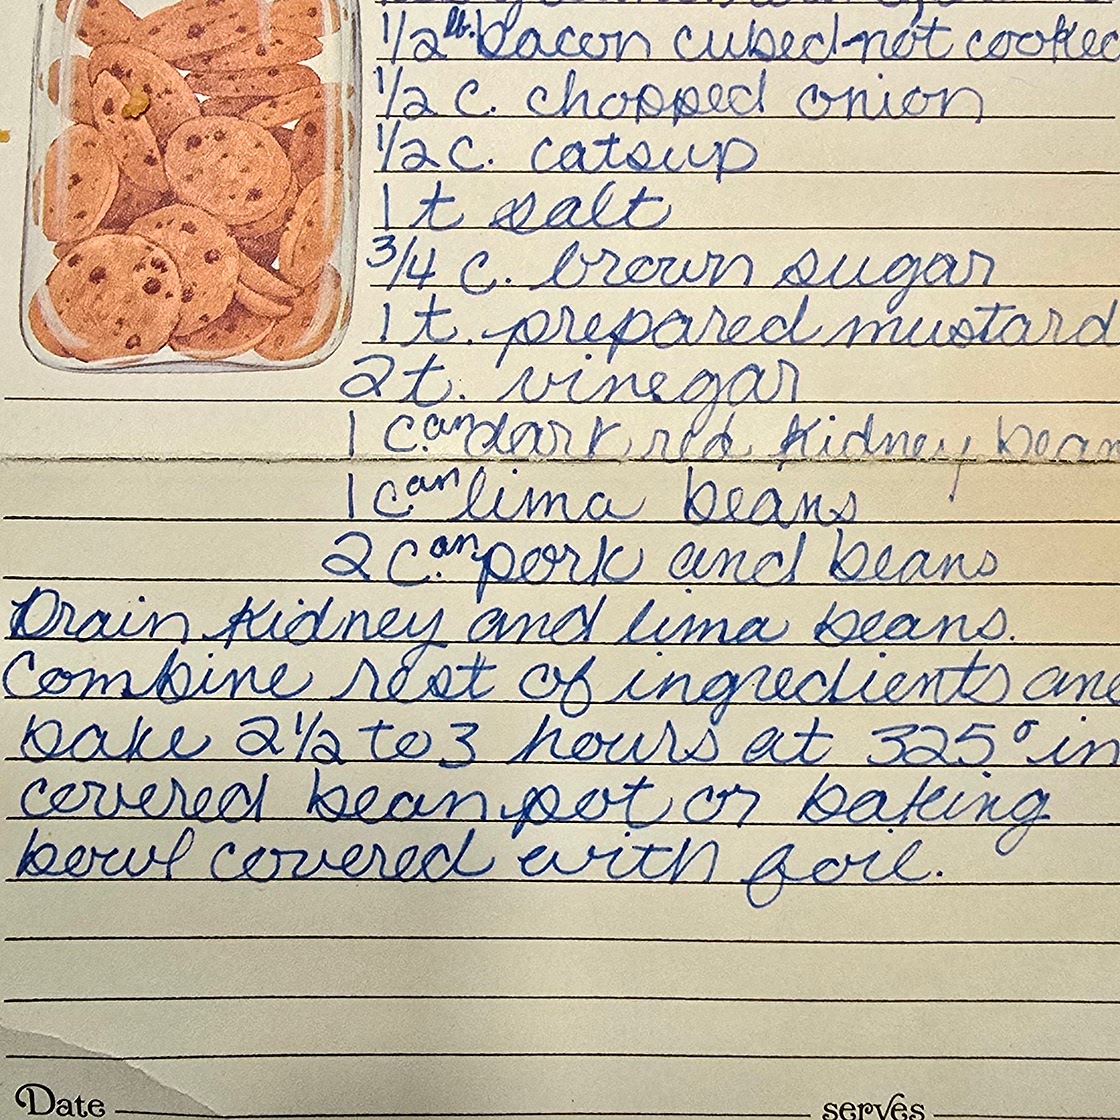 1/2 lb. bacon cubed-not cooked
1/2 c. chopped onion
1/2 c. catsup
1 t salt
3/4 c. brown sugar
1 t. prepared mustard
2 t. vinegar
1 can dark red kidney bean
1 can lima beans
2 c.an pork and beans
Drain kidney and lima beans.
Combine rest of ingredients and
bake 2 1/2 to 3 hours at 325° in
covered bean pot or baking
bowl covered with foil.
Date serves